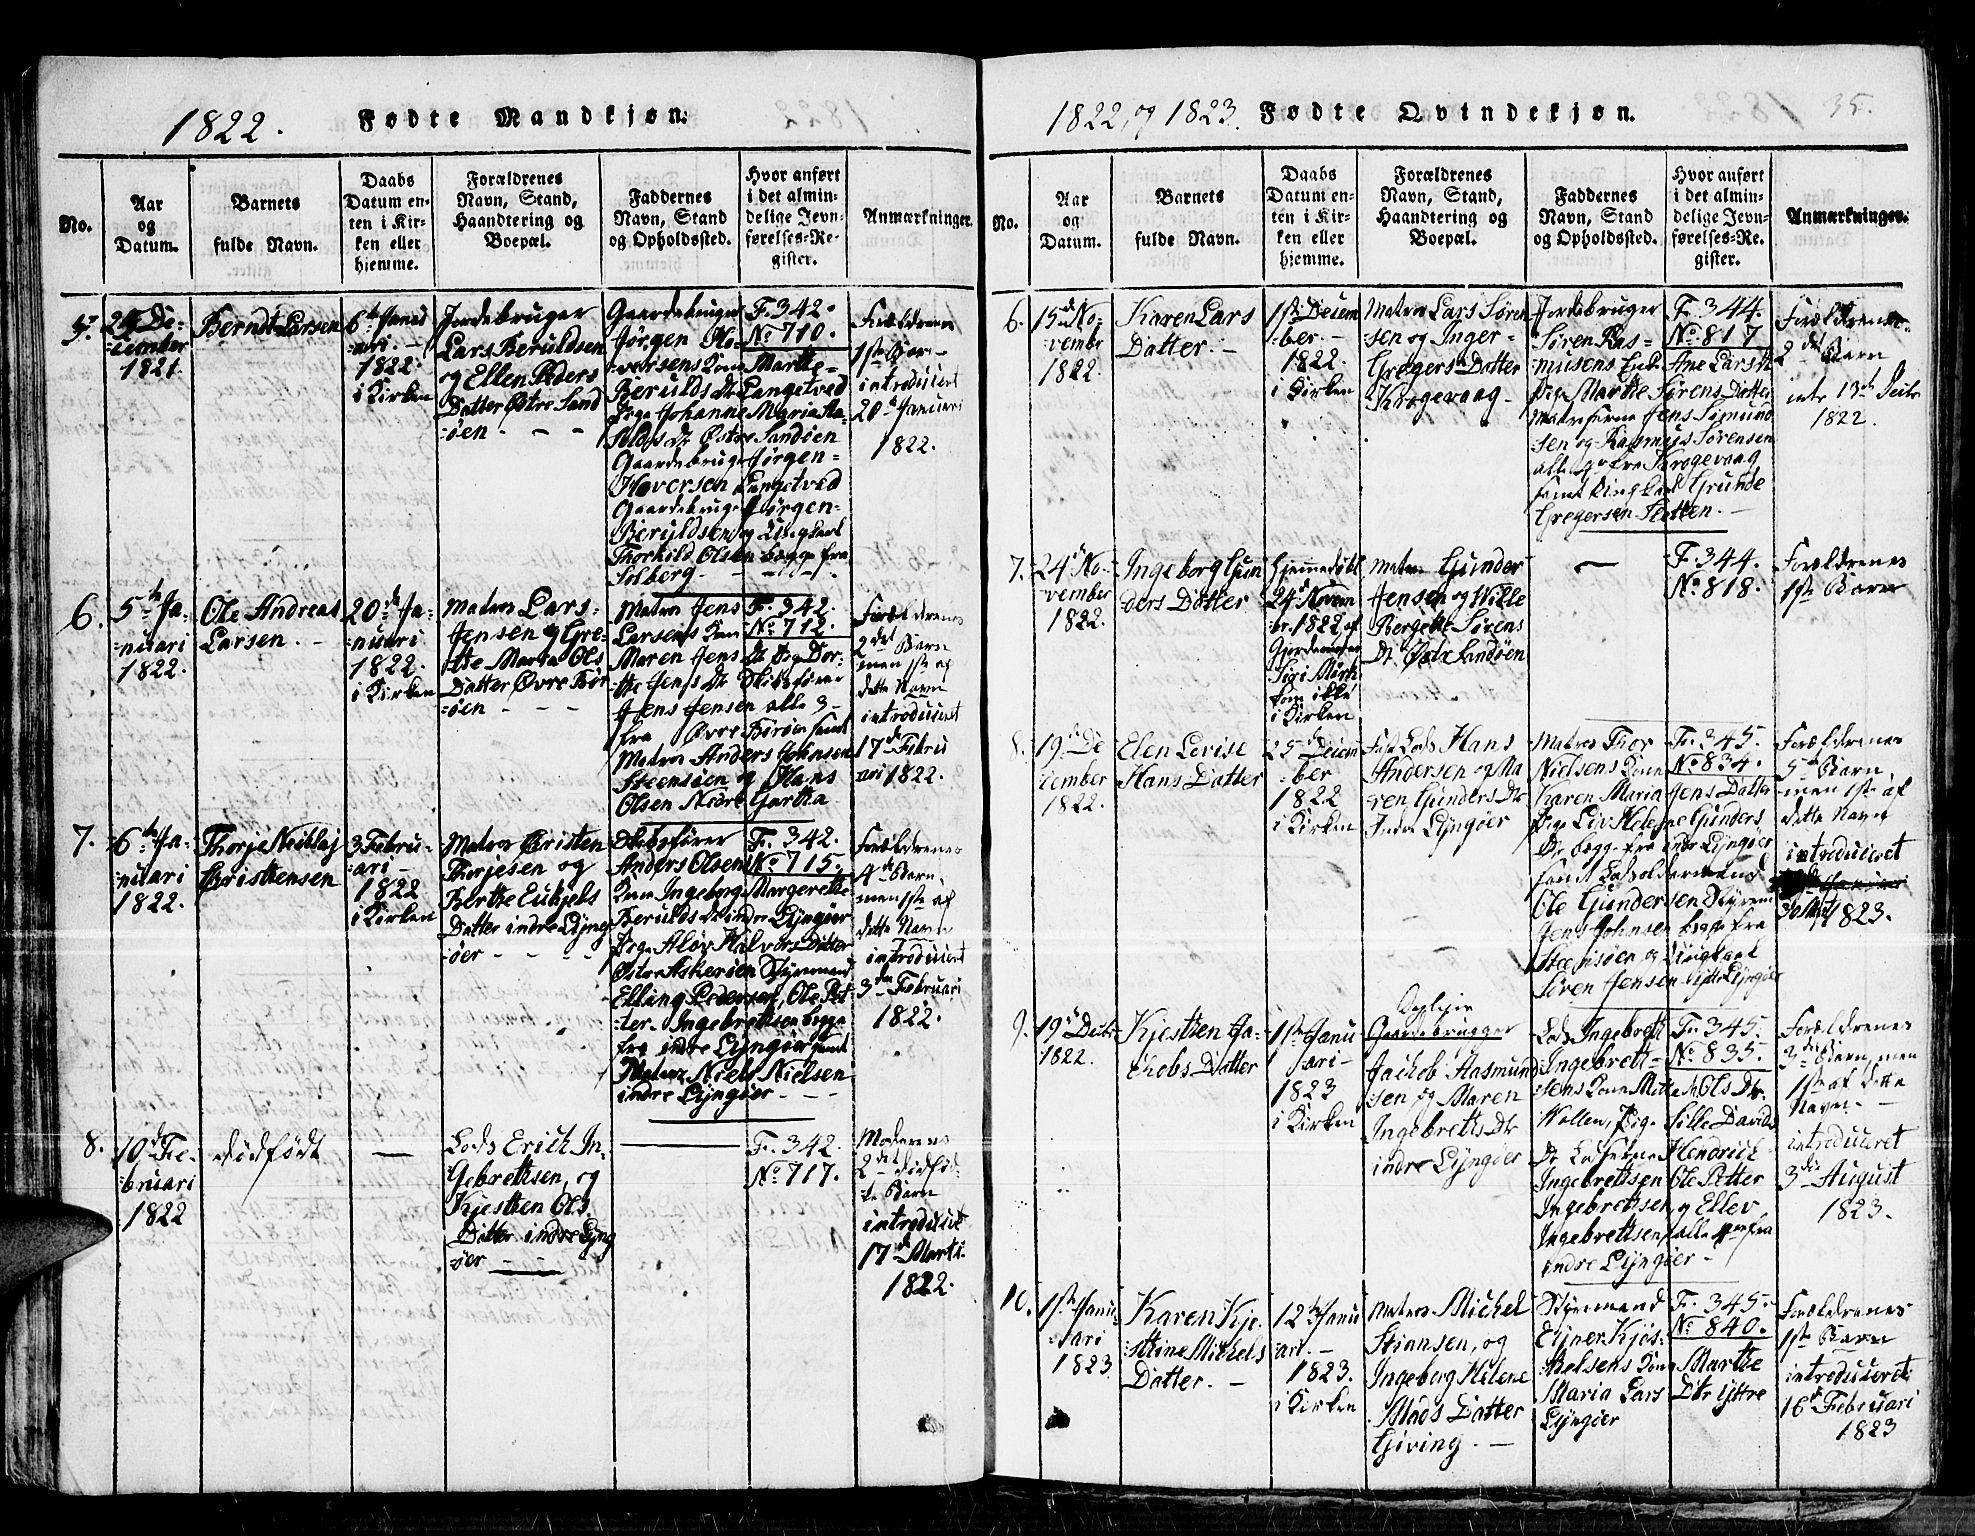 1822. Fødte Mandkjøn.
No.
Aar
og
Datum.
Barnets
fulde Navn.
Daabs
Datum en-
ten i Kir-
ken eller
hjemme.
Forældrenes
Navn, Stand,
Haandtering og
Boepæl.
Faddernes
Navn, Stand
og Opholdssted.
Hvor anført
i det almin-
delige Jevn-
førelses-Re-
gister.
Anmærkninger.
5.
24 De-
cember
1821.
Berndt Larsen
6te Janu
ari. -
1822.
i Kirken
Jordebruger
Lars Beruldsen
og Ellen Peders
Datter Østre Sand
øen - - -
Gaardebruger
Jørgen Ho-
versens Kone Marthe
Berulds Dr Langetved
Pige Johanne Maria Aa-
Dr Østre Sandøen
Gaardebruger Jørgen
Hoversen Langetved
Gaardebruger Jørgen
Beruldsen og Ungkarl
Thorkild Olsen begge fra
Solberg
F. 342.
No 710.
Forældrenes
1ste Barn
introduceret
20de Januari
1822.
6.
5te Ja-
nuari
1822.
Ole Andreas
Larsen. -
20de Ja-
nuari
1822.
i Kirken
Matros Lars
Jensen og Gre-
the Maria Ols
Datter Øvre Bor
øen - - -
Matros Jens
Larsens Kone
Maren Jens Dr Pige Dor-
the Jens Dr Skibsfører
Jens Jensen alle 3-
fra Øvre Borøen samt
Matros Anders Johnsen
Steensøen og Hans
Olsen Nedre Gartha
F. 342.
No 712.
Forældrenes
2det Barn
men 1ste af
dette Navn
introduceret
17de Febru
ari 1822.
7.
6te Ja-
nuari
1822.
Thorje
Christensen
3 Febru-
ari -
1822
i Kirken
Matros Christen
Thorjesen og
Berthe Eukjels
Datter indre Lyng
øer - - - -
Skibsfører
Anders Olsens
Kone Ingeborg Margrethe
Berulds Dr indre Lyngøer
Pige Aløv Halvors Datter
Østre Askerøen Styrmand
Elling Pedersen, Ole Pet-
ter Ingebrethsen begge
fra indre Lyngøer samt
Matros Niels Nielsen
indre Lyngøer - -
F. 342.
No 715.
Forældrenes
4de Barn,
men 1ste af
dette Navn
introduceret
3de Februari
1822.
8.
10de Fe-
bruari
1822
dødfødt
—
Lods Erich In-
gebrethsen, og
Kjesthen Ols
Datter indre Lyng
øer - -
F. 342.
No 717.
Moderenes
2det dødfød-
te Barn
introduceret
17de Marti
1822.
1822, og 1823. Fødte Qvindekjøn. 35.
No.
Aar
og
Datum.
Barnets
fulde Navn.
Daabs
Datum en-
ten i Kir-
ken eller
hjemme.
Forældrenes
Navn, Stand,
Haandtering og
Boepæl.
Faddernes
Navn, Stand
og Opholdssted.
Hvor anført
i det almin-
delige Jevn-
førelses-Re-
gister.
Anmærkninger.
6.
15de No-
vember
1822
Karen Lars
Datter. -
1ste Decem
ber. -
1822.
i Kirken
Matros Lars Søren
sen og Inger
Gregers Datter
Krogevaag -
Jordebruger
Søren Ras-
musens Enke Ane Lars Dr
Pige Marthe Sørens Datter
Matroserne Jens Simund
sen og Rasmus Sørensen
alle fra Krogevaag
samt Ungkarl Grunde
Gregersen
F. 344.
No 817
Forældrenes
2det Barn
intr 13de
1822.
7.
24de No-
vember
1822.
Ingeborg Gun
ders Datter
Hjemmedøbt
24de Novem
br. 1822 af
Gjordemoder
Siri Mørk
som ikke
i Kirken
Matros Gunder
Jensen og Wille
Bergethe Sørens
Dr Østre Sandøen
—
F. 344.
No 818.
Forældrenes
1ste Barn
8.
19de De
cember
1822.
Elen Lovise
Hans Datter
25de Decem
ber
1822
i Kirken
Lods Hans
Andersen og Ma
ren Gunders Dr
Indre Lyngøer
Matros Thor
Nielsens Kone
Karen Maria Jens Datter
Pige Liv Helene Gunders
Dr begge fra indre Lyngøer
samt Lodsoldermand
Ole Gundersen Styrm
Jens Johnsen begge fra
Steensøen og Ungkarl
Søren Jensen Ydre Lyngøer
F. 345.
No 834.
Forældrenes
5te Barn,
men 1ste af
dette Navn
introduceret
1823.
9.
19de Decbr
1822.
Kjesthen Ja-
chobs Datter
1ste Janu
ari -
1823
i Kirken
Gaardebrugger
Jachob Aasmund
sen, og Maren
Ingebreths Dr
indre Lyngøer
Lods Ingebreth
Ingebreth-
sens Kone Mette M Ols Dr
Wollen, Pige Sille Davids
Dr Lodserne Hendrich
Ingebrethsen Ole Petter
Ingebrethsen og Ellev
Ingebrethsen alle fra
indre Lyngøer -
F. 345.
No 835.
Forældrenes
3die Barn, men
1ste af dette
Navn -
introduceret
3die August
1823.
10.
1ste Janu
ari
1823
Karen Kje
stine Michels
Datter. -
12te Janu
ari. -
1823.
i Kirken
Matros Michel
Stiansen, og
Ingeborg Helene
Mads Datter
Giving. -
Styrmand
Ejner Kjøs-
Kone Marthe
Maria Lars Dtr Yttre
Lyngøer
F. 345.
No 840.
Forældrenes
1ste Barn
introduceret
16de Februari
1823